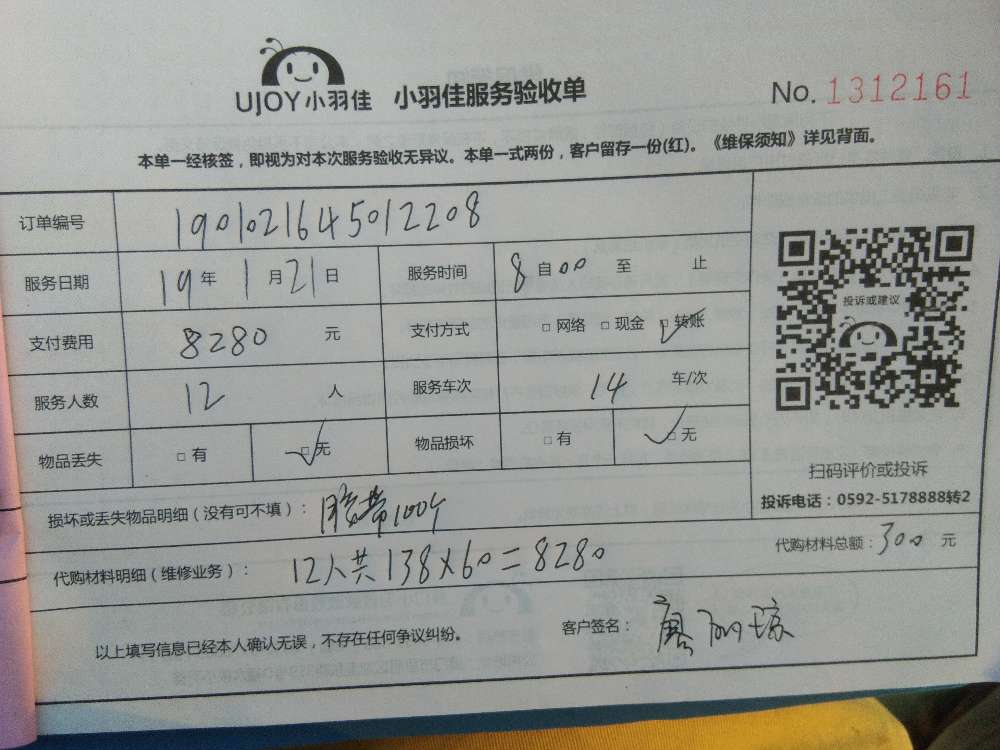 UJOY小羽佳 小羽佳服务验收单 No. 1312161
本单一经核签，即视为对本次服务验收无异议。本单一式两份，客户留存一份(红)。《维保须知》详见背面。
订单编号 1901021645012208
服务日期 19年1月21日 服务时间 8自00至 止
支付费用 8280 元 支付方式 □网络 □现金 ☑转账
投诉或建议
服务人数 12 人 服务车次 14 车/次
物品丢失 □有 ☑无 物品损坏 □有 ☑无
扫码评价或投诉
投诉电话：0592-5178888转2
损坏或丢失物品明细（没有可不填）：胶带100个
代购材料明细（维修业务）：12人共138×60=8280 代购材料总额：300元
以上填写信息已经本人确认无误，不存在任何争议纠纷。 客户签名：